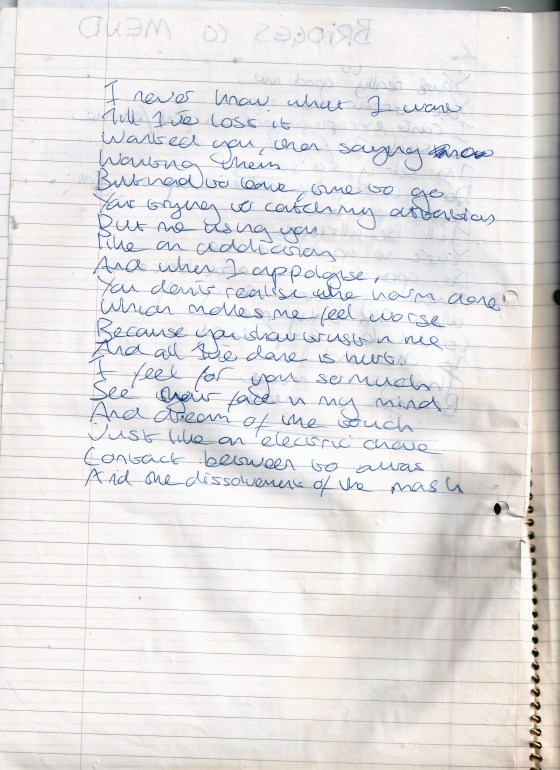 BRIDGES to MEND
I never know what I want
Till I've lost it
Wanted you, then saying
Wanting them
But had to leave, time to go
Your trying to catch my attention
But me using you
Like an addiction
And when I appologise,
You don't realise the harm done
Which makes me feel worse
Because you show trust in me
And all I've done is hurt.
I feel for you so much
See your face in my mind
And dream of the touch
Just like an electric
Contact between to
And the dissolvement of the mask